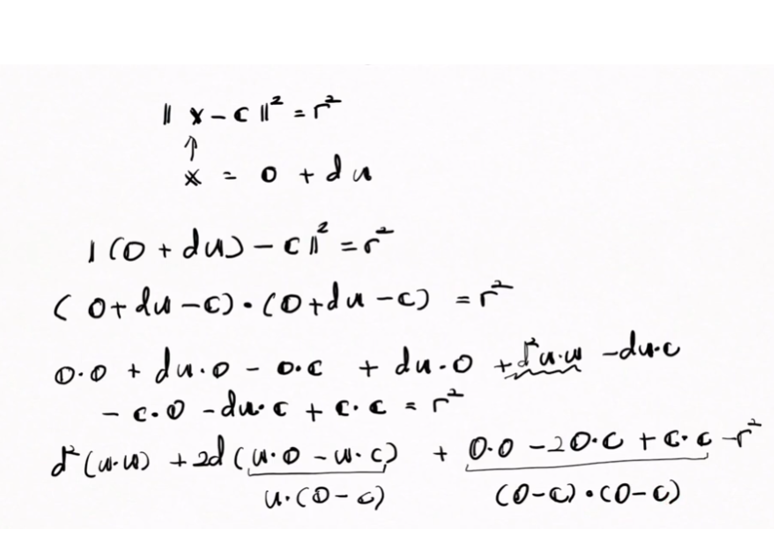 ‖ x - c ‖² = r²
↑
x = o + du
‖ (o + du) - c ‖² = r²
(o + du - c) · (o + du - c) = r²
o·o + du·o - o·c + du·o + d²u·u - du·c
- c·o - du·c + c·c = r²
d²(u·u) + 2d(u·o - u·c) + o·o - 2o·c + c·c - r²
u·(o - c) (o - c)·(o - c)